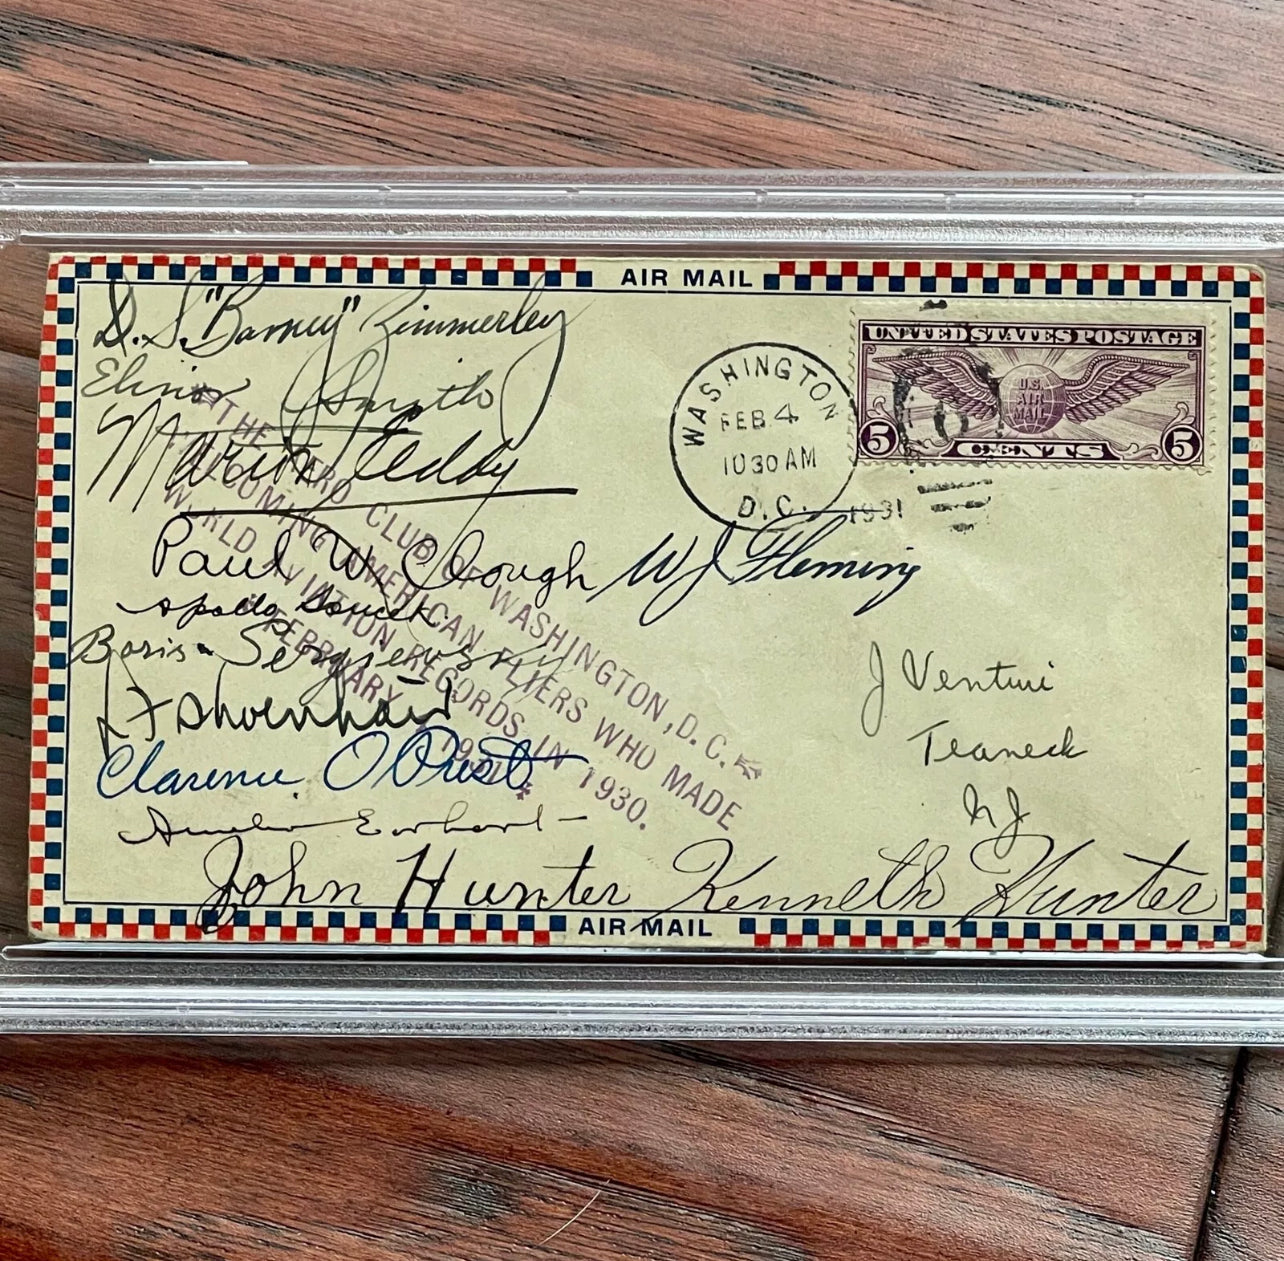 AIR MAIL
D. S. "Barney" Zimmerley
Elinor Smyth
Martin Jeddy
Paul W. Clough W J Fleming
Apollo Soucek
Boris Sergievsky
Shoenhair
Clarence O Prest
Amelia Earhart
John Hunter Kenneth Hunter
THE CARD CLUB OF WASHINGTON, D.C.
WELCOMING AMERICAN FLIERS WHO MADE
WORLD AVIATION RECORDS IN 1930.
FEBRUARY 1931
WASHINGTON
FEB 4
10 30 AM
D.C. 1931
UNITED STATES POSTAGE
U.S.
AIR
MAIL
5 CENTS 5
J Venturi
Teaneck
NJ
AIR MAIL